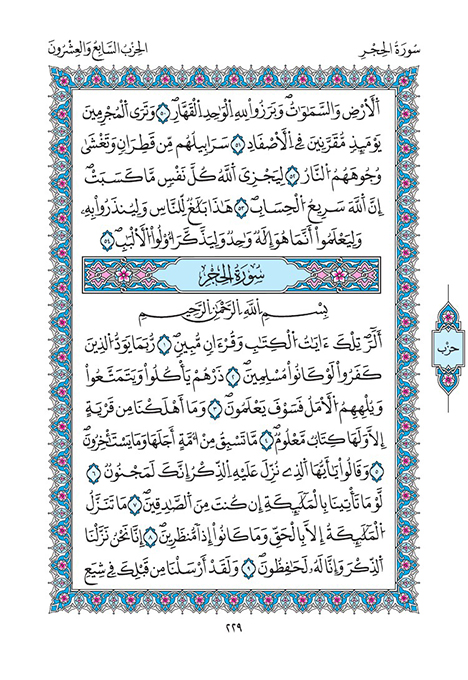 سُورَةُ الحِجْرِ
الحِزْبُ السَّابِعُ وَالعِشْرُونَ
اَلَارْضِ وَالسَّمَٰوَٰتُ وَبَرَزُواْ لِلهِ اِلْوَٰحِدِ اِلْقَهّ۪ارِ ٥٠ وَتَرَي اَلْمُجْرِمِينَ
يَوْمَئِذٖ مُّقَرَّنِينَ فِے اِلَاصْفَادِ ٥١ سَرَابِيلُهُم مِّن قَطِرَانٖ وَتَغْش۪يٰ
وُجُوهَهُمُ النَّارُ ٥٢ لِيَجْزِيَ اَللَّهُ كُلَّ نَفْسٖ مَّا كَسَبَتِ
اِنَّ اَللَّهَ سَرِيعُ الْحِسَابِ ٥٣ هَٰذَا بَلَٰغٞ لِّلنَّاسِ وَلِيُنذَرُواْ بِهِۦ
وَلِيَعْلَمُواْ أَنَّمَا هُوَ إِلَٰهٞ وَٰحِدٞ وَلِيَذَّكَّرَ أُوْلُواْ الَالْبَٰبِ ٥٤
سُورَةُ الحِجْرِ
بِسْمِ اللَّهِ الرَّحْمَٰنِ الرَّحِيمِ
أَلَٓر۪ تِلْكَ ءَايَٰتُ الْكِتَٰبِ وَقُرْءَانٖ مُّبِينٖ ١ رُّبَمَا يَوَدُّ الذِينَ
كَفَرُواْ لَوْ كَانُواْ مُسْلِمِينَ ٢ ذَرْهُمْ يَاكُلُواْ وَيَتَمَتَّعُواْ
وَيُلْهِهِمُ الَامَلُ فَسَوْفَ يَعْلَمُونَ ٣ وَمَا أَهْلَكْنَا مِن قَرْيَةٍ
اِلَّا وَلَهَا كِتَابٞ مَّعْلُومٞ ٤ مَّا تَسْبِقُ مِنُ امَّةٍ اَجَلَهَا وَمَا يَسْتَٰخِرُونَ
٥ وَقَالُواْ يَٰأَيُّهَا اَلذِے نُزِّلَ عَلَيْهِ اِلذِّكْرُ إِنَّكَ لَمَجْنُونٞ ٦
لَّوْ مَا تَاتِينَا بِالْمَلَٰٓئِكَةِ إِن كُنتَ مِنَ اَلصَّٰدِقِينَ ٧ مَا تَنَزَّلُ
اَلْمَلَٰٓئِكَةُ إِلَّا بِالْحَقِّ وَمَا كَانُواْ إِذاٗ مُّنظَرِينَ ٨ إِنَّا نَحْنُ نَزَّلْنَا
اَلذِّكْرَ وَإِنَّا لَهُۥ لَحَٰفِظُونَ ٩ وَلَقَدَ اَرْسَلْنَا مِن قَبْلِكَ فِے شِيَعِ
حزب
٢٢٩